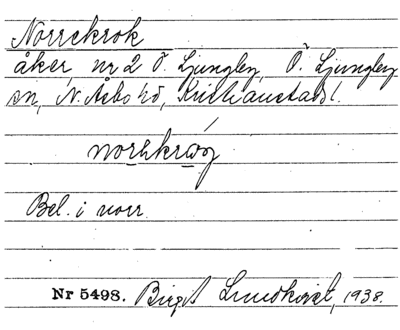 Norrekrok
åker, nr 2 Ö. Ljungby, Ö. Ljungby
sn, N. Åsbo hd, Kristianstads l.
Bel. i norr.
Nr 5498. Birgit Lundkvist, 1938.